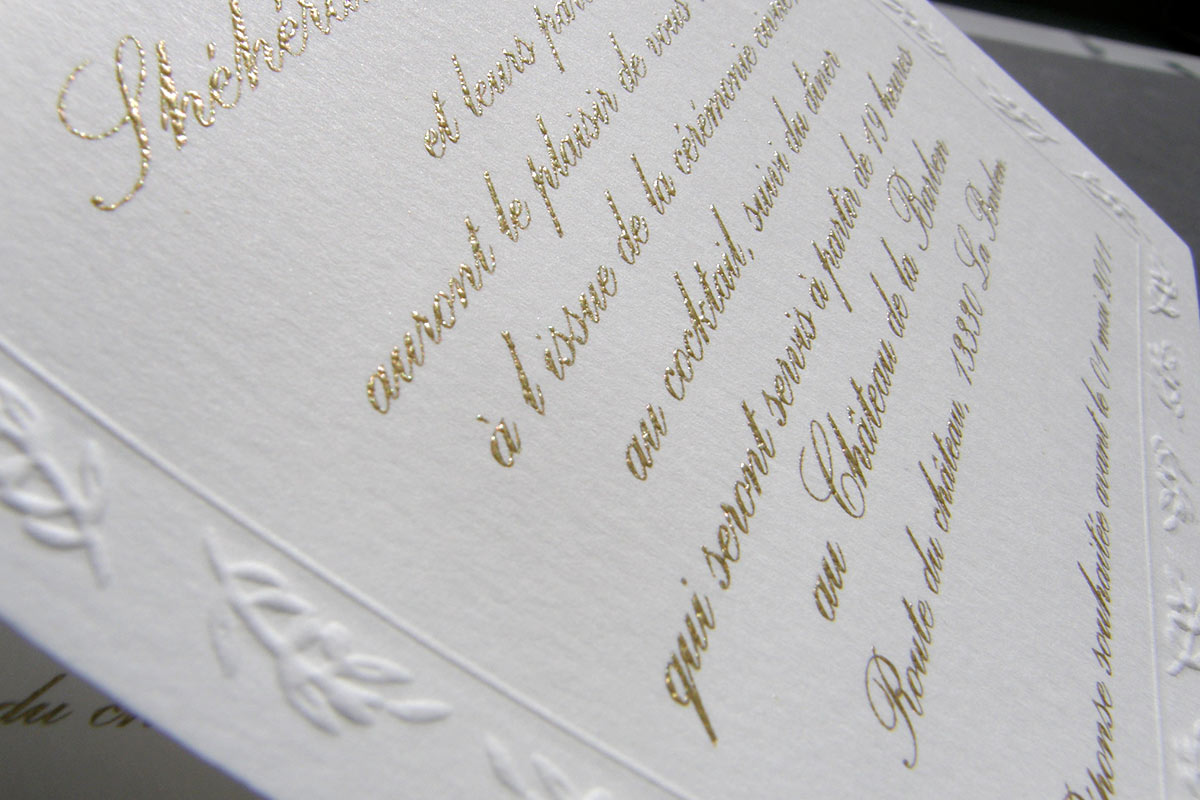 et leurs
auront le plaisir de vous
à l'issue de la cérémonie
au cocktail, suivi du dîner
qui seront servis à partir de 19 heures
au Château de la Barben
Route du château, 13330 La Barben
souhaitée avant le 01 mai 2011.
du